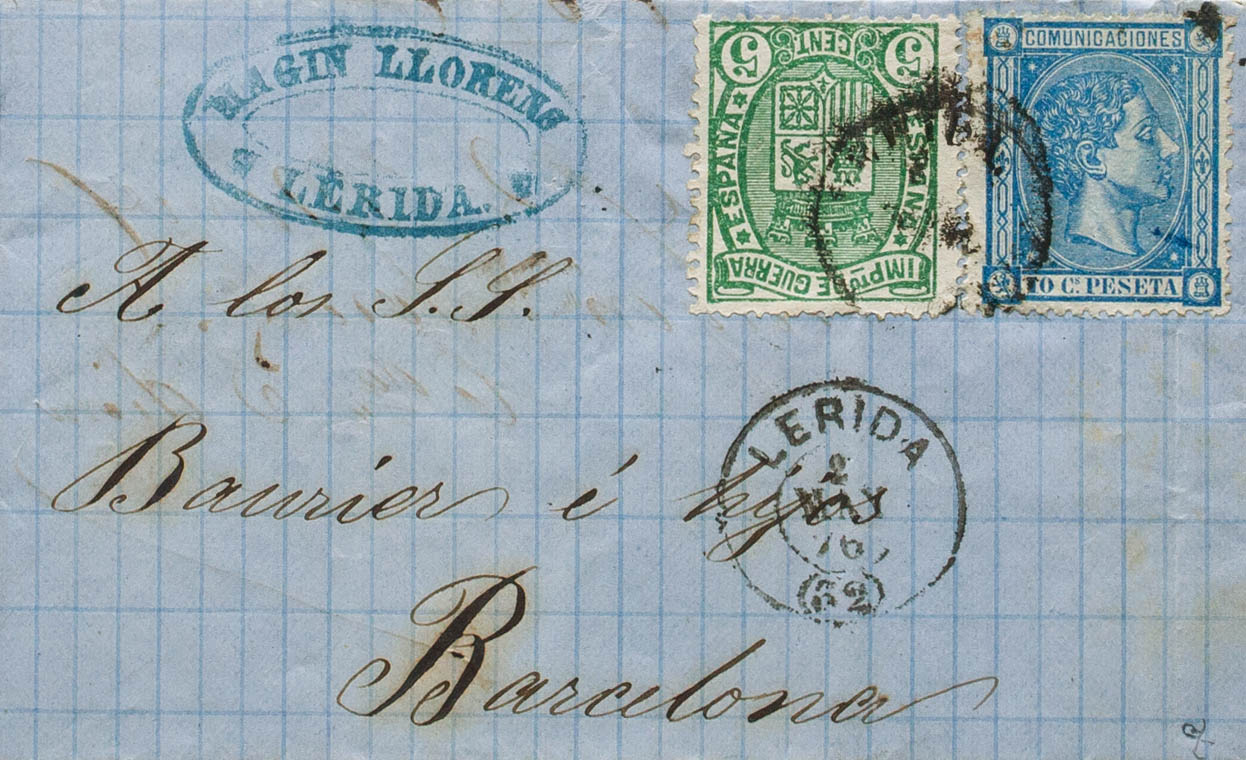 MAGIN LLORENS
LÉRIDA.
5 CENT. 5
ESPAÑA
ESPAÑA
IMPTO DE GUERRA
COMUNICACIONES
10 Cs. PESETA
A los S.S.
LERIDA
2
MAY
76
(62)
Baurier é hijos
Barcelona